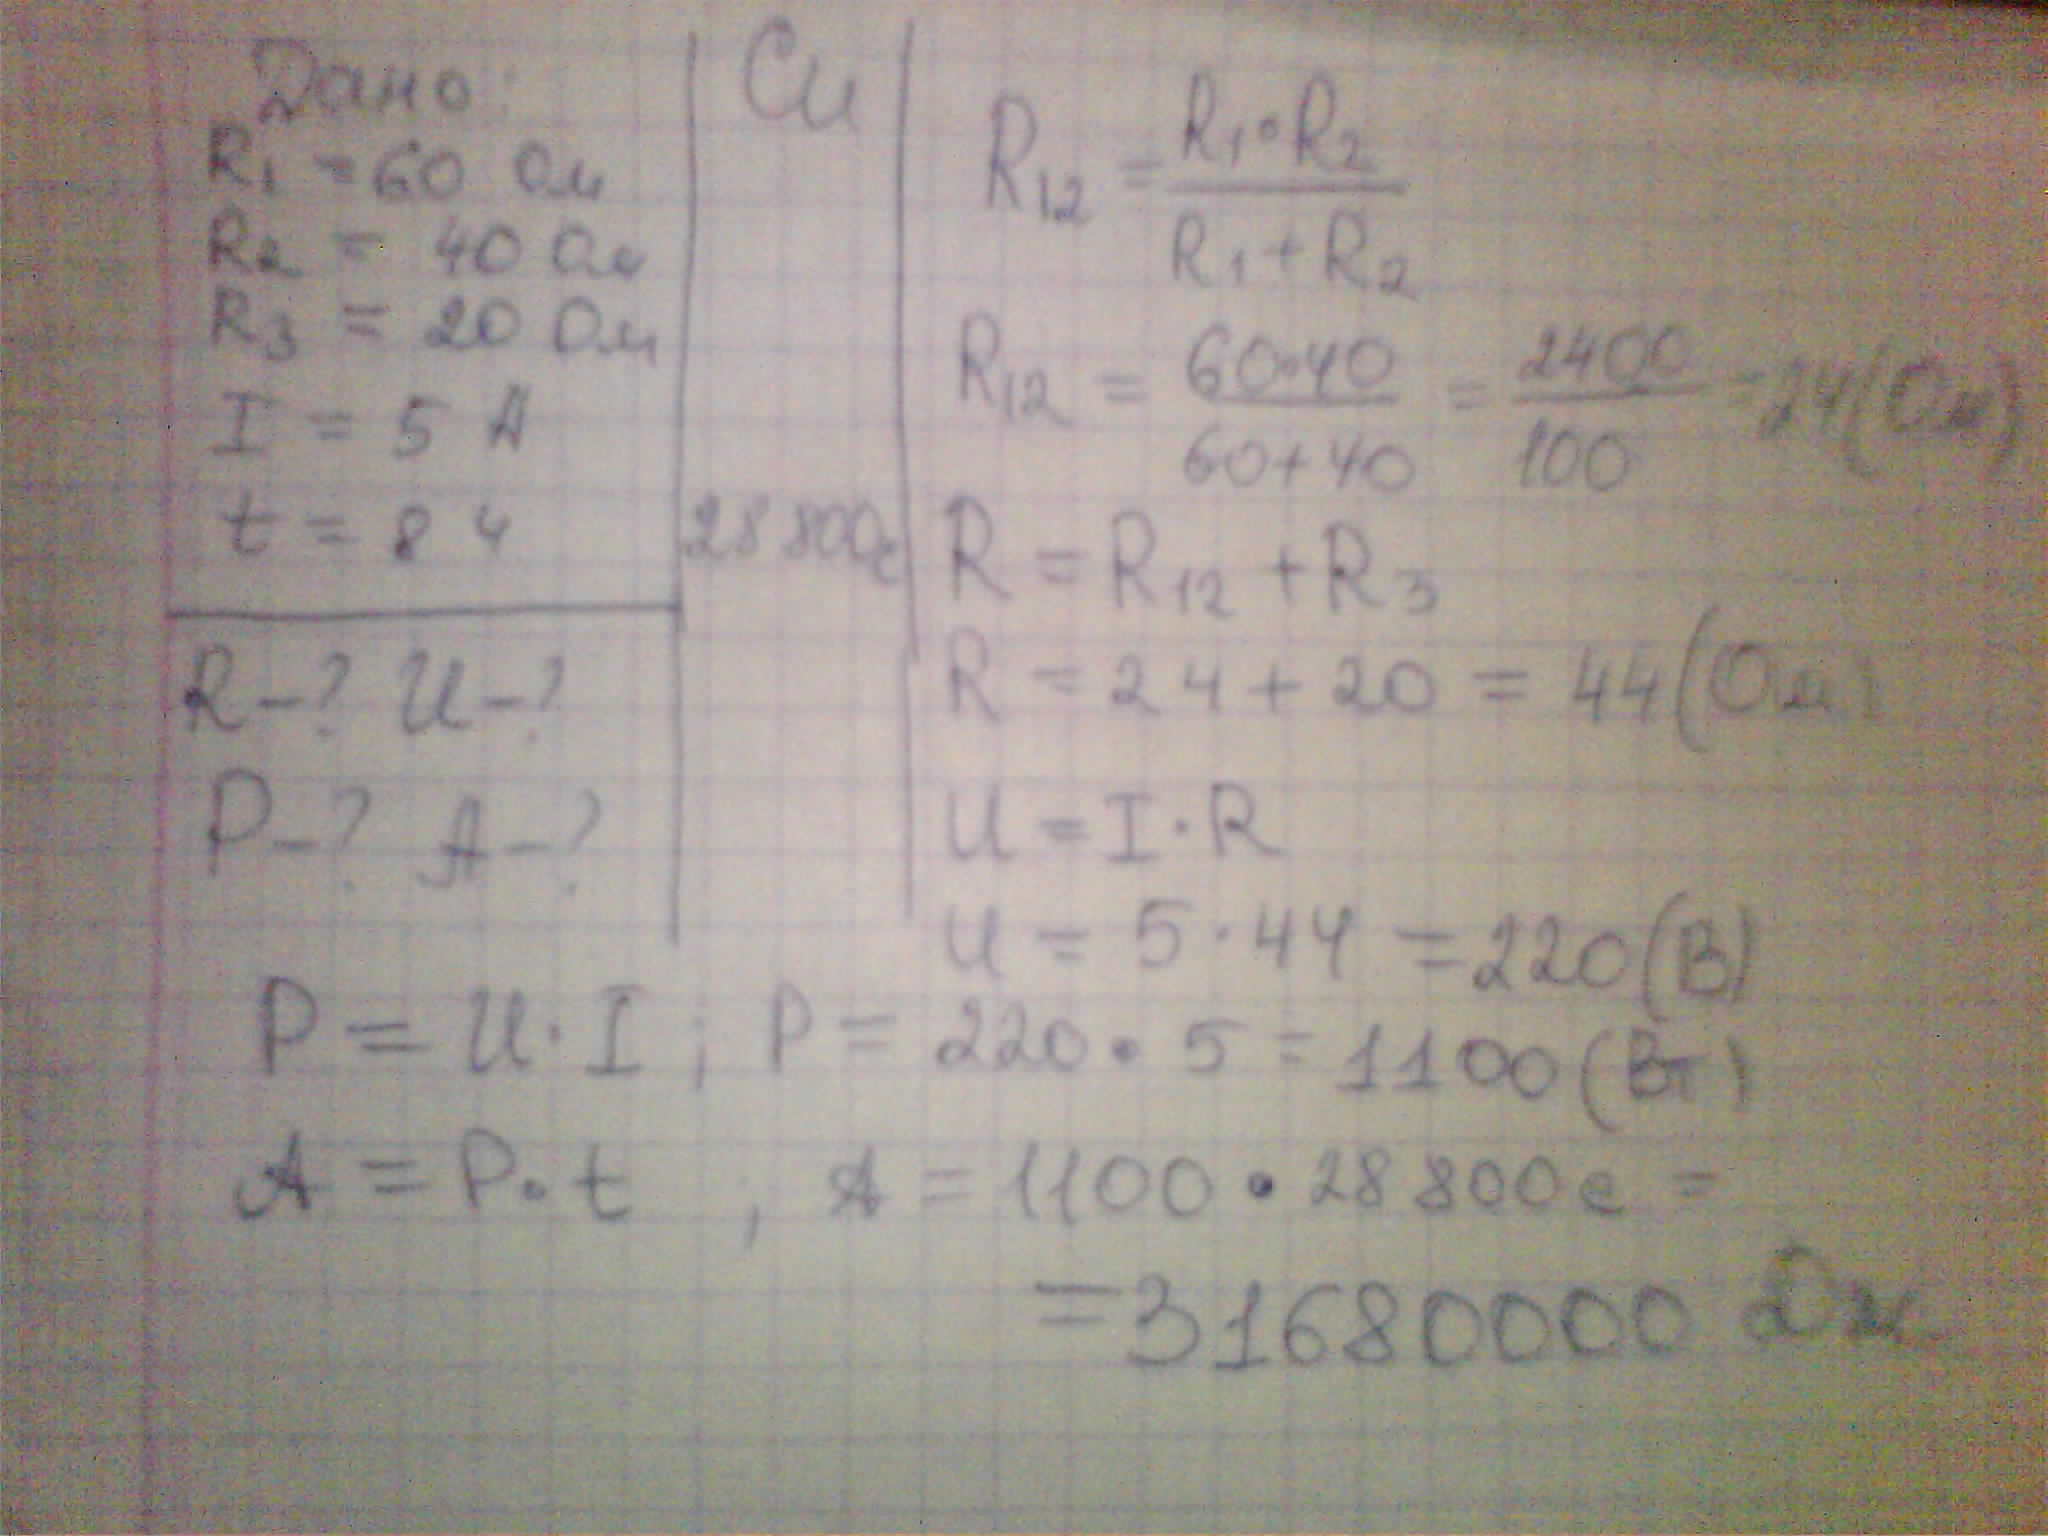 Дано:
R1 = 60 Ом
R2 = 40 Ом
R3 = 20 Ом
I = 5 А
t = 8 ч
R–? U–?
P–? A–?
Си
28800с
R12 = R1•R2 / R1+R2
R12 = 60•40 / 60+40 = 2400 / 100 = 24(Ом)
R = R12 + R3
R = 24 + 20 = 44(Ом)
U = I·R
U = 5·44 = 220(В)
P = U·I; P = 220•5 = 1100(Вт)
A = P•t, A = 1100•28800с =
= 31680000 Дж